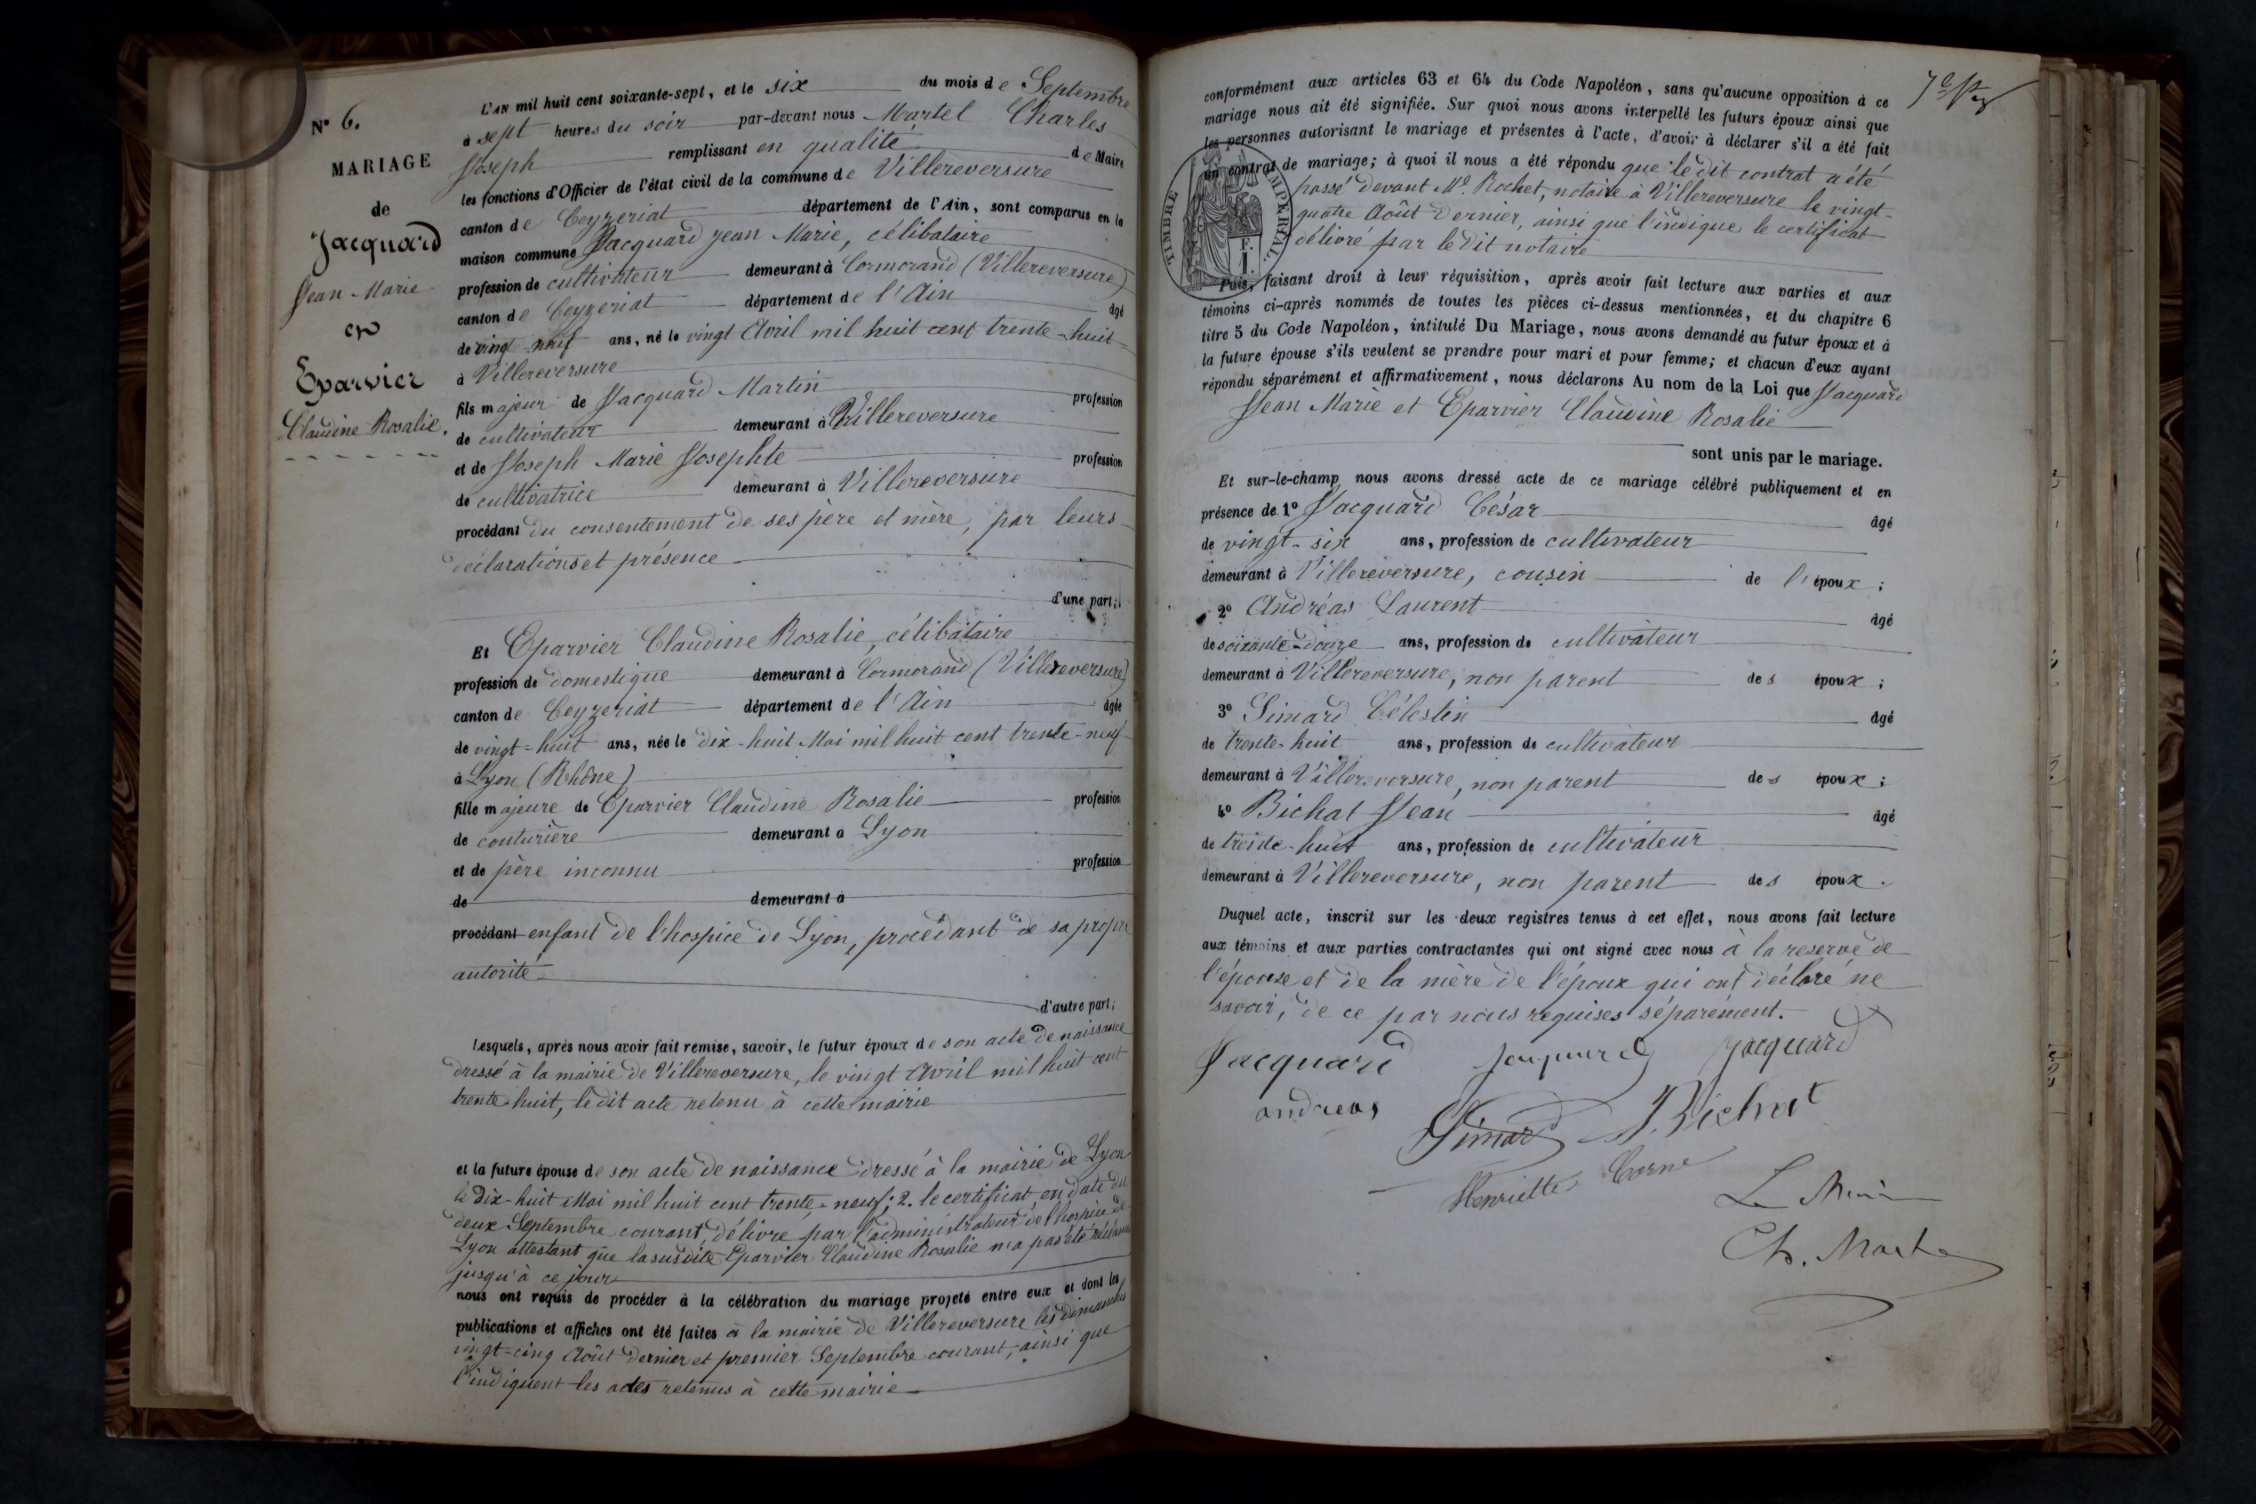 N° 6.
MARIAGE
de
Jacquard
Jean Marie
et
Eparvier
Claudine Rosalie.
L'AN mil huit cent soixante-sept, et le six du mois de Septembre
à sept heures du soir par-devant nous Martel Charles
Joseph remplissant en qualité de Maire
les fonctions d'Officier de l'état civil de la commune de Villereversure
canton de Ceyzeriat département de l'Ain, sont comparus en la
maison commune Jacquard Jean Marie, célibataire
profession de cultivateur demeurant à Cormorand (Villereversure)
canton de Ceyzeriat département de l'Ain âgé
de vingt neuf ans, né le vingt Avril mil huit cent trente-huit
à Villereversure
fils majeur de Jacquard Martin profession
de cultivateur demeurant à Villereversure
et de Joseph Marie Josephte profession
de cultivatrice demeurant à Villereversure
procédant du consentement de ses père et mère, par leurs
déclarations et présence
d'une part;
Et Eparvier Claudine Rosalie, célibataire
profession de domestique demeurant à Cormorand (Villereversure)
canton de Ceyzeriat département de l'Ain âgée
de vingt-huit ans, née le dix-huit Mai mil huit cent trente-neuf
à Lyon (Rhône)
fille majeure de Eparvier Claudine Rosalie profession
de couturière demeurant à Lyon
et de père inconnu profession
de demeurant à
procédant enfant de l'hospice de Lyon, procédant de sa propre
autorité
d'autre part;
Lesquels, après nous avoir fait remise, savoir, le futur époux de son acte de naissance
dressé à la mairie de Villereversure, le vingt Avril mil huit cent
trente-huit, ledit acte retenu à cette mairie
et la future épouse de son acte de naissance dressé à la mairie de Lyon
le dix-huit Mai mil huit cent trente-neuf; 2. le certificat en date du
deux Septembre courant, délivré par l'administrateur de l'hospice de
Lyon attestant que la susdite Eparvier Claudine Rosalie n'a pas été réclamée
jusqu'à ce jour
nous ont requis de procéder à la célébration du mariage projeté entre eux et dont les
publications et affiches ont été faites à la mairie de Villereversure les dimanches
vingt-cinq Août dernier et premier Septembre courant, ainsi que
l'indiquent les actes retenus à cette mairie
conformément aux articles 63 et 64 du Code Napoléon, sans qu'aucune opposition à ce
mariage nous ait été signifiée. Sur quoi nous avons interpellé les futurs époux ainsi que
les personnes autorisant le mariage et présentes à l'acte, d'avoir à déclarer s'il a été fait
un contrat de mariage; à quoi il nous a été répondu que ledit contrat a été
passé devant Me. Rochet, notaire à Villereversure le vingt-
quatre Août dernier, ainsi que l'indique le certificat
délivré par ledit notaire
TIMBRE IMPERIAL
F. I.
Puis, faisant droit à leur réquisition, après avoir fait lecture aux parties et aux
témoins ci-après nommés de toutes les pièces ci-dessus mentionnées, et du chapitre 6
titre 5 du Code Napoléon, intitulé Du Mariage, nous avons demandé au futur époux et à
la future épouse s'ils veulent se prendre pour mari et pour femme; et chacun d'eux ayant
répondu séparément et affirmativement, nous déclarons Au nom de la Loi que Jacquard
Jean Marie et Eparvier Claudine Rosalie
sont unis par le mariage.
Et sur-le-champ nous avons dressé acte de ce mariage célébré publiquement et en
présence de 1° Jacquard César âgé
de vingt-six ans, profession de cultivateur
demeurant à Villereversure, cousin de l'époux;
2° Andréas Laurent âgé
de soixante-douze ans, profession de cultivateur
demeurant à Villereversure, non parent des époux;
3° Simard Célestin âgé
de trente-huit ans, profession de cultivateur
demeurant à Villereversure, non parent des époux;
4° Bichat Jean âgé
de trente-huit ans, profession de cultivateur
demeurant à Villereversure, non parent des époux.
Duquel acte, inscrit sur les deux registres tenus à cet effet, nous avons fait lecture
aux témoins et aux parties contractantes qui ont signé avec nous à la reserve de
l'épouse et de la mère de l'époux qui ont déclaré ne
savoir, de ce par nous requises séparément.
Jacquard Jacquard Jacquard
andreas Simard J. Bichat
Henriette
Le Maire
Ch. Martel